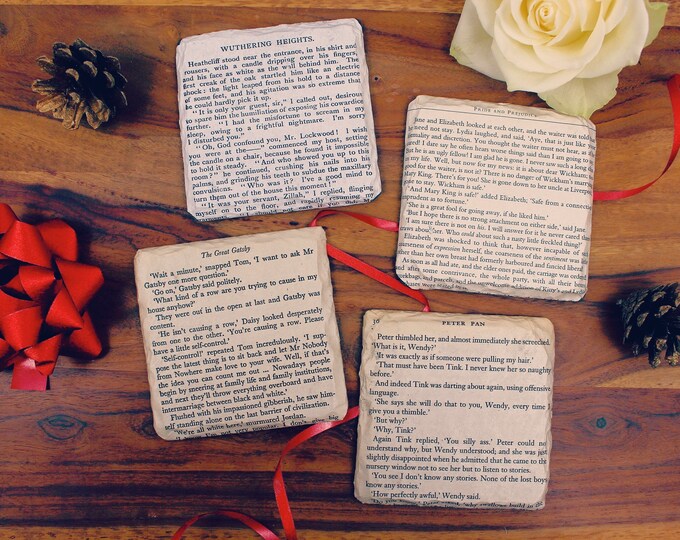 WUTHERING HEIGHTS.
Heathcliff stood near the entrance, in his shirt and
rousers, with a candle dripping over his fingers,
and his face as white as the wall behind him. The
first creak of the oak startled him like an electric
shock: the light leaped from his hold to a distance
of some feet, and his agitation was so extreme that
he could hardly pick it up.
"It is only your guest, sir," I called out, desirous
further. "I had the misfortune to scream in my
sleep, owing to a frightful nightmare. I'm sorry
disturbed you."
"Oh, God confound you, Mr. Lockwood! I wish
you were at the——" commenced my host, setting
the candle on a chair, because he found it impossible
to hold it steady. "And who showed you up to this
room?" he continued, crushing his nails into his
palms, and grinding his teeth to subdue the maxillary
"Who was it? I've a good mind to
turn them out of the house this moment!"
"It was your servant, Zillah," I replied, flinging
myself on to the floor, and rapidly resuming my
PRIDE AND PREJUDICE
Jane and Elizabeth looked at each other, and the waiter was told
he need not stay. Lydia laughed, and said, 'Aye, that is just like
mality and discretion. You thought the waiter must not hear, as if
ared! I dare say he often hears worse things said than I am going to
but he is an ugly fellow! I am glad he is gone. I never saw such a long
n my life. Well, but now for my news: it is about dear Wickham
good for the waiter, is not it? There is no danger of Wickham's marry
Mary King. There's for you! She is gone down to her uncle at Liverpo
gone to stay. Wickham is safe.'
'And Mary King is safe!' added Elizabeth; 'Safe from a connectio
'She is a great fool for going away, if she liked him.'
'But I hope there is no strong attachment on either side,' said Jane.
'I am sure there is not on his. I will answer for it he never cared
traws about her. Who could about such a nasty little freckled thing?'
Elizabeth was shocked to think that, however incapable of su
coarseness of expression herself, the coarseness of the sentiment was lit
other than her own breast had formerly harboured and fancied liberal
As soon as all had ate, and the elder ones paid, the carriage was ordered
after some contrivance, the whole party, with all their boxes
The Great Gatsby
'Wait a minute,' snapped Tom, 'I want to ask Mr
Gatsby one more question.'
'Go on,' Gatsby said politely.
'What kind of a row are you trying to cause in my
house anyhow?'
They were out in the open at last and Gatsby was
content.
'He isn't causing a row,' Daisy looked desperately
from one to the other. 'You're causing a row. Please
have a little self-control.'
'Self-control!' repeated Tom incredulously. 'I sup-
pose the latest thing is to sit back and let Mr Nobody
from Nowhere make love to your wife. Well, if that's
the idea you can count me out ... Nowadays people
begin by sneering at family life and family institutions,
and next they'll throw everything overboard and have
intermarriage between black and white.'
Flushed with his impassioned gibberish, he saw him-
self standing alone on the last barrier of civilization.
'We're all white here,' murmured Jordan.
PETER PAN
Peter thimbled her, and almost immediately she screeched.
'What is it, Wendy?'
'It was exactly as if someone were pulling my hair.'
'That must have been Tink. I never knew her so naughty
before.'
And indeed Tink was darting about again, using offensive
language.
'She says she will do that to you, Wendy, every time I
give you a thimble.'
'But why?'
'Why, Tink?'
Again Tink replied, 'You silly ass.' Peter could no
understand why, but Wendy understood; and she was just
slightly disappointed when he admitted that he came to the
nursery window not to see her but to listen to stories.
'You see I don't know any stories. None of the lost boys
know any stories.'
'How perfectly awful,' Wendy said.